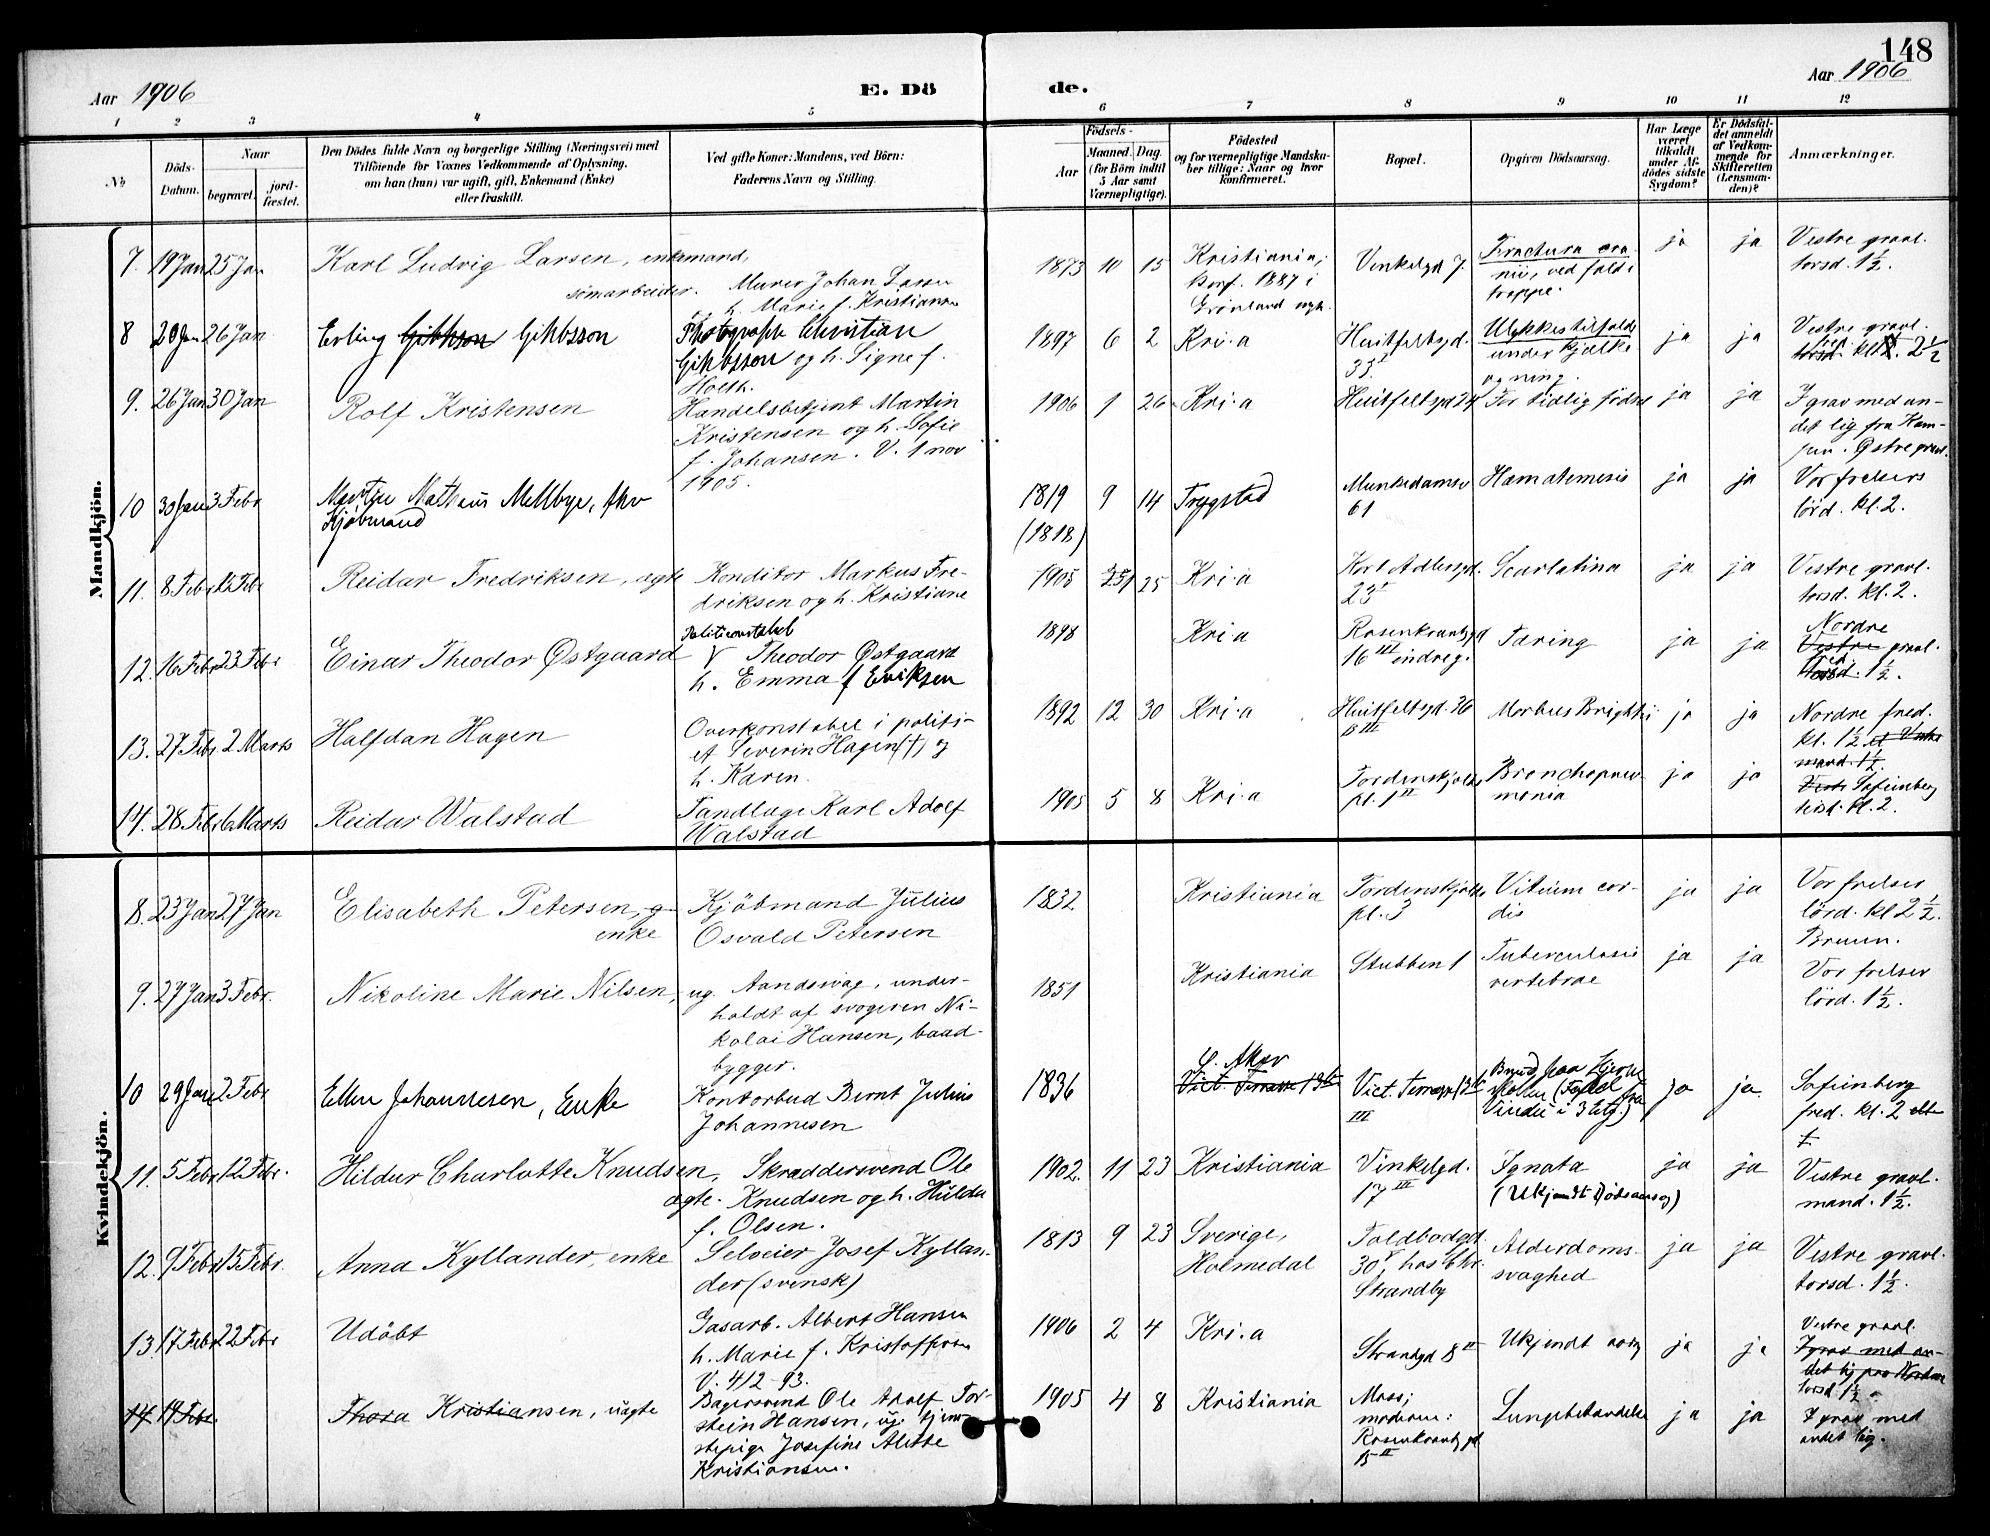 148
Aar 1906
E. Dö
de.
Aar 1906
1 2 3 4 5 6 7 8 9 10 11 12
No
Döds-
Datum.
Naar
begravet.
jord-
fæstet.
Den Dödes fulde Navn og borgerlige Stilling (Næringsvei) med
Tilföiende for Voxnes Vedkommende af Oplysning,
om han (hun) var ugift, gift, Enkemand (Enke)
eller fraskilt.
Ved gifte Koner: Mandens, ved Börn:
Faderens Navn og Stilling.
Födsels-
Aar
Maaned.
Dag.
(for Börn indtil
5 Aar samt
Værnepligtige).
Födested
og for værnepligtige Mandska-
ber tillige: Naar og hvor
konfirmeret.
Bopæl.
Opgiven Dödsaarsag.
Har Læge
været
tilkaldt
under Af-
dödes sidste
Sygdom?
Er Dödsfal-
det anmeldt
af Vedkom-
mende for
Skifteretten
(Lensman-
den)?
Anmærkninger.
Mandkjön.
7. 19 Jan 25 Jan
Karl Ludvig Larsen, enkemand,
Murer Johan Larsen
h. Marie f. Kristiansen
1873 10 15
Kristiania,
konf. 1887 i
Grønland
Vinkelgd 7.
Fractura cra-
nii, ved fald i
trappe.
ja ja
Vestre gravl.
torsd. 1½.
8 20 Jan 26 Jan
Erling Gihbsson Gihbsson
Photograph Christian
Gihbsson og h. Signe f.
Holth.
1897 6 2
Kri.a
Huitfeltsgd.
33 I
Ulykkestilfælde
under kjælke
agning.
ja ja
Vestre gravl.
torsd. kl. 2½
9. 26 Jan 30 Jan
Rolf Kristensen
Handelsbetjent Martin
Kristensen og h. Sofie
f. Johansen. V. 1 nov
1905.
1906 1 26
Kri.a
Huitfeltsgd 24
For tidlig födsel
ja ja
I grav med an-
det lig fra Kam-
pen. Østre gravl.
10 30 Jan 3 Febr
Mathæus Mellbye, fhv
Kjöbmand
1819 9 14
(1818)
Trygstad
Munkedamsv
61
Hæmatemesis
ja ja
Vor frelsers
lörd. kl. 2.
11. 8 Febr 15 Febr
Reidar Fredriksen, ægte
Konditor Markus Fre-
driksen og h. Kristiane
1905 25
Kri.a
Kort Adlersgd.
23 I
Scarlatina
ja ja
Vestre gravl.
torsd. kl. 2.
12. 16 Febr 23 Febr
Einar Theodor Østgaard
Politikonstabel
Theodor Østgaard
h. Emma f Eriksen
1898
Kri.a
Rosenkrantzgd
16 III indreg.
Tæring
ja ja
Nordre
Vestre gravl.
fred.
torsd. 1½.
13. 27 Febr 2 Marts
Halfdan Hagen
Overkonstabel i politi-
et Severin Hagen (†) og
h. Karen.
1892 12 30
Kri.a
Huitfeltsgd. 36
B III
Morbus Brightii
ja ja
Nordre fred.
kl. 1½ el Vestre
mand. 1½.
14. 28 Febr 6 Marts
Reidar Walstad
Tandlæge Karl Adolf
Walstad
1905 5 8
Kri.a
Tordenskjolds
pl. 1 II
Bronchopneu-
monia
ja ja
Vestr. Sofienberg
tirsd. kl. 2.
Kvindekjön.
8. 23 Jan 27 Jan
Elisabeth Petersen, g
enke
Kjöbmand Julius
Osvald Petersen
1832
Kristiania
Tordenskjolds
pl. 3
Vitium cor-
dis
ja ja
Vor frelser
lörd. kl 2½.
Bruun.
9. 27 Jan 3 Febr.
Nikoline Marie Nilsen, ug.
Aandssvag, under-
holdt af svogeren Ni-
kolai Hansen, baad-
bygger.
1851
Kristiania
Stubben 1
Tuberculosis
vertebrae
ja ja
Vor frelser
lörd. 1½.
10 29 Jan 2 Febr
Ellen Johannesen, Enke
Kontorbud Bernt Julius
Johannesen
1836
Ø. Aker
Vict. Terrasse 13 b
Vict. Terrasse 13 b
III
Brud paa Hjerne
skallen (Fald fra
Vindu i 3 Etg.)
ja ja.
Sofienberg
fred. kl. 2 eller
1
11. 5 Febr 12 Febr.
Hildur Charlotte Knudsen,
ægte.
Skræddersvend Ole
Knudsen og h. Hulda
f. Olsen.
1902. 11 23
Kristiania
Vinkelgd.
17 III
Ignota
(Ukjendt Dödsaarsag)
ja ja
Vestre gravl.
mand. 1½.
12. 9 Febr 15 Febr.
Anna Kyllander, enke
Selveier Josef Kyllan-
der (svensk)
1813 9 23
Sverige,
Holmedal
Toldbodgd.
30 V, hos bhr.
Strandby
Alderdoms-
svaghed
ja ja
Vestre gravl.
torsd. 1½.
13. 17 Febr 22 Febr
Udöbt
Gasarb. Albert Hansen
h. Marie f. Kristoffersen
V. 4/12-93.
1906 2 4
Kri.a
Strandgd 8 II
Ukjendt aarsg
ja ja
Vestre gravl.
I grav med an-
det lig fra
torsd 1½.
14 19 Febr.
Thora Kristiansen, uægte
Bagersvend Ole Adolf Tor-
stein Hansen, ug. tjene
stepige Josefine Alette
Kristiansen.
1905 4 8
Kristiania
Moss;
moderen:
Rosenkrantzgd
15 II
Lungebetændelse
ja ja
I grav med
andet lig.